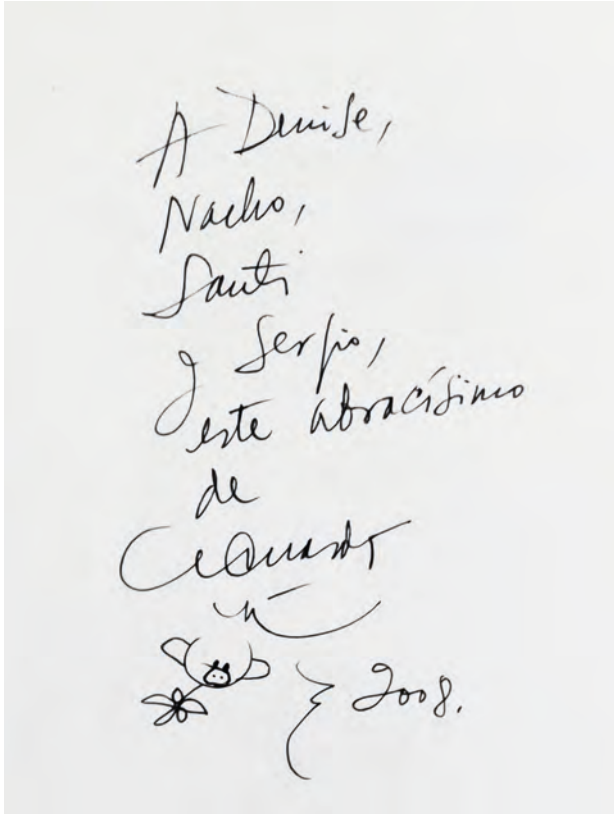 A Denise,
Nacho,
Santi
y Sergio,
este abracísimo
de
Eduardo
2008.